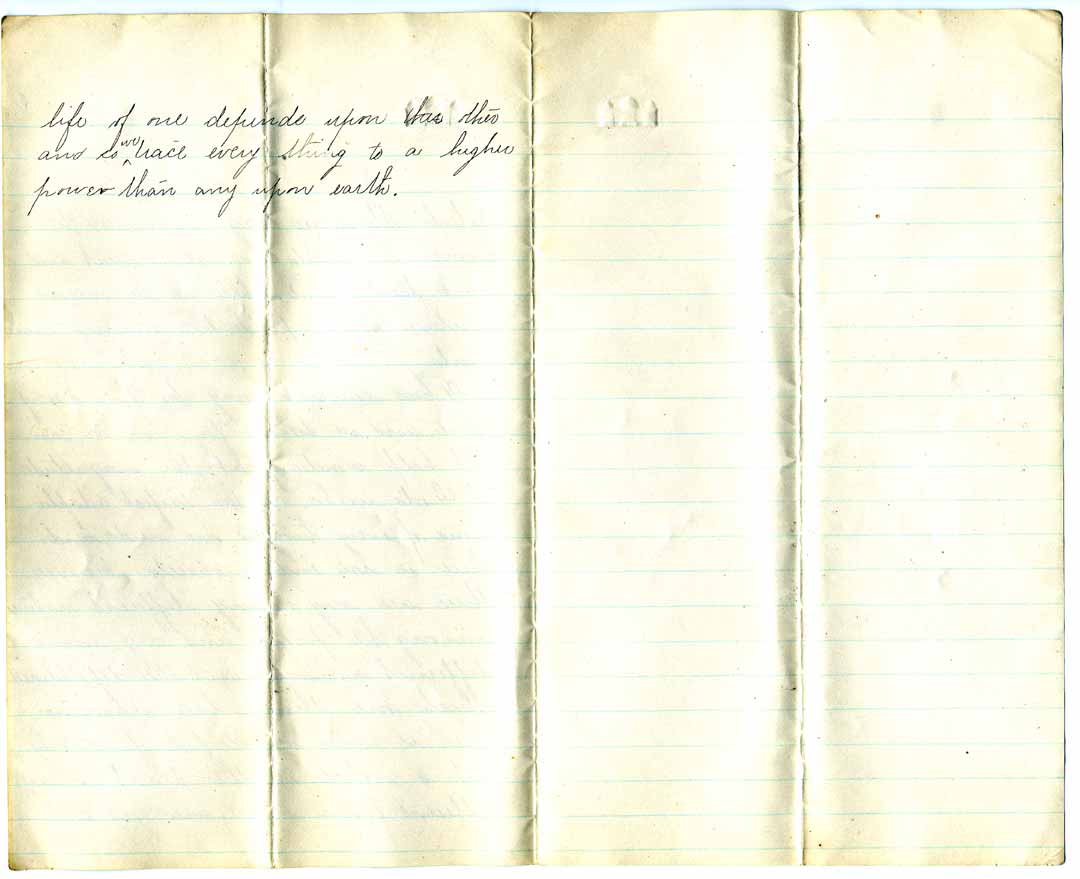 life of one depends upon the other
and so we trace every thing to a higher
power than any upon earth.